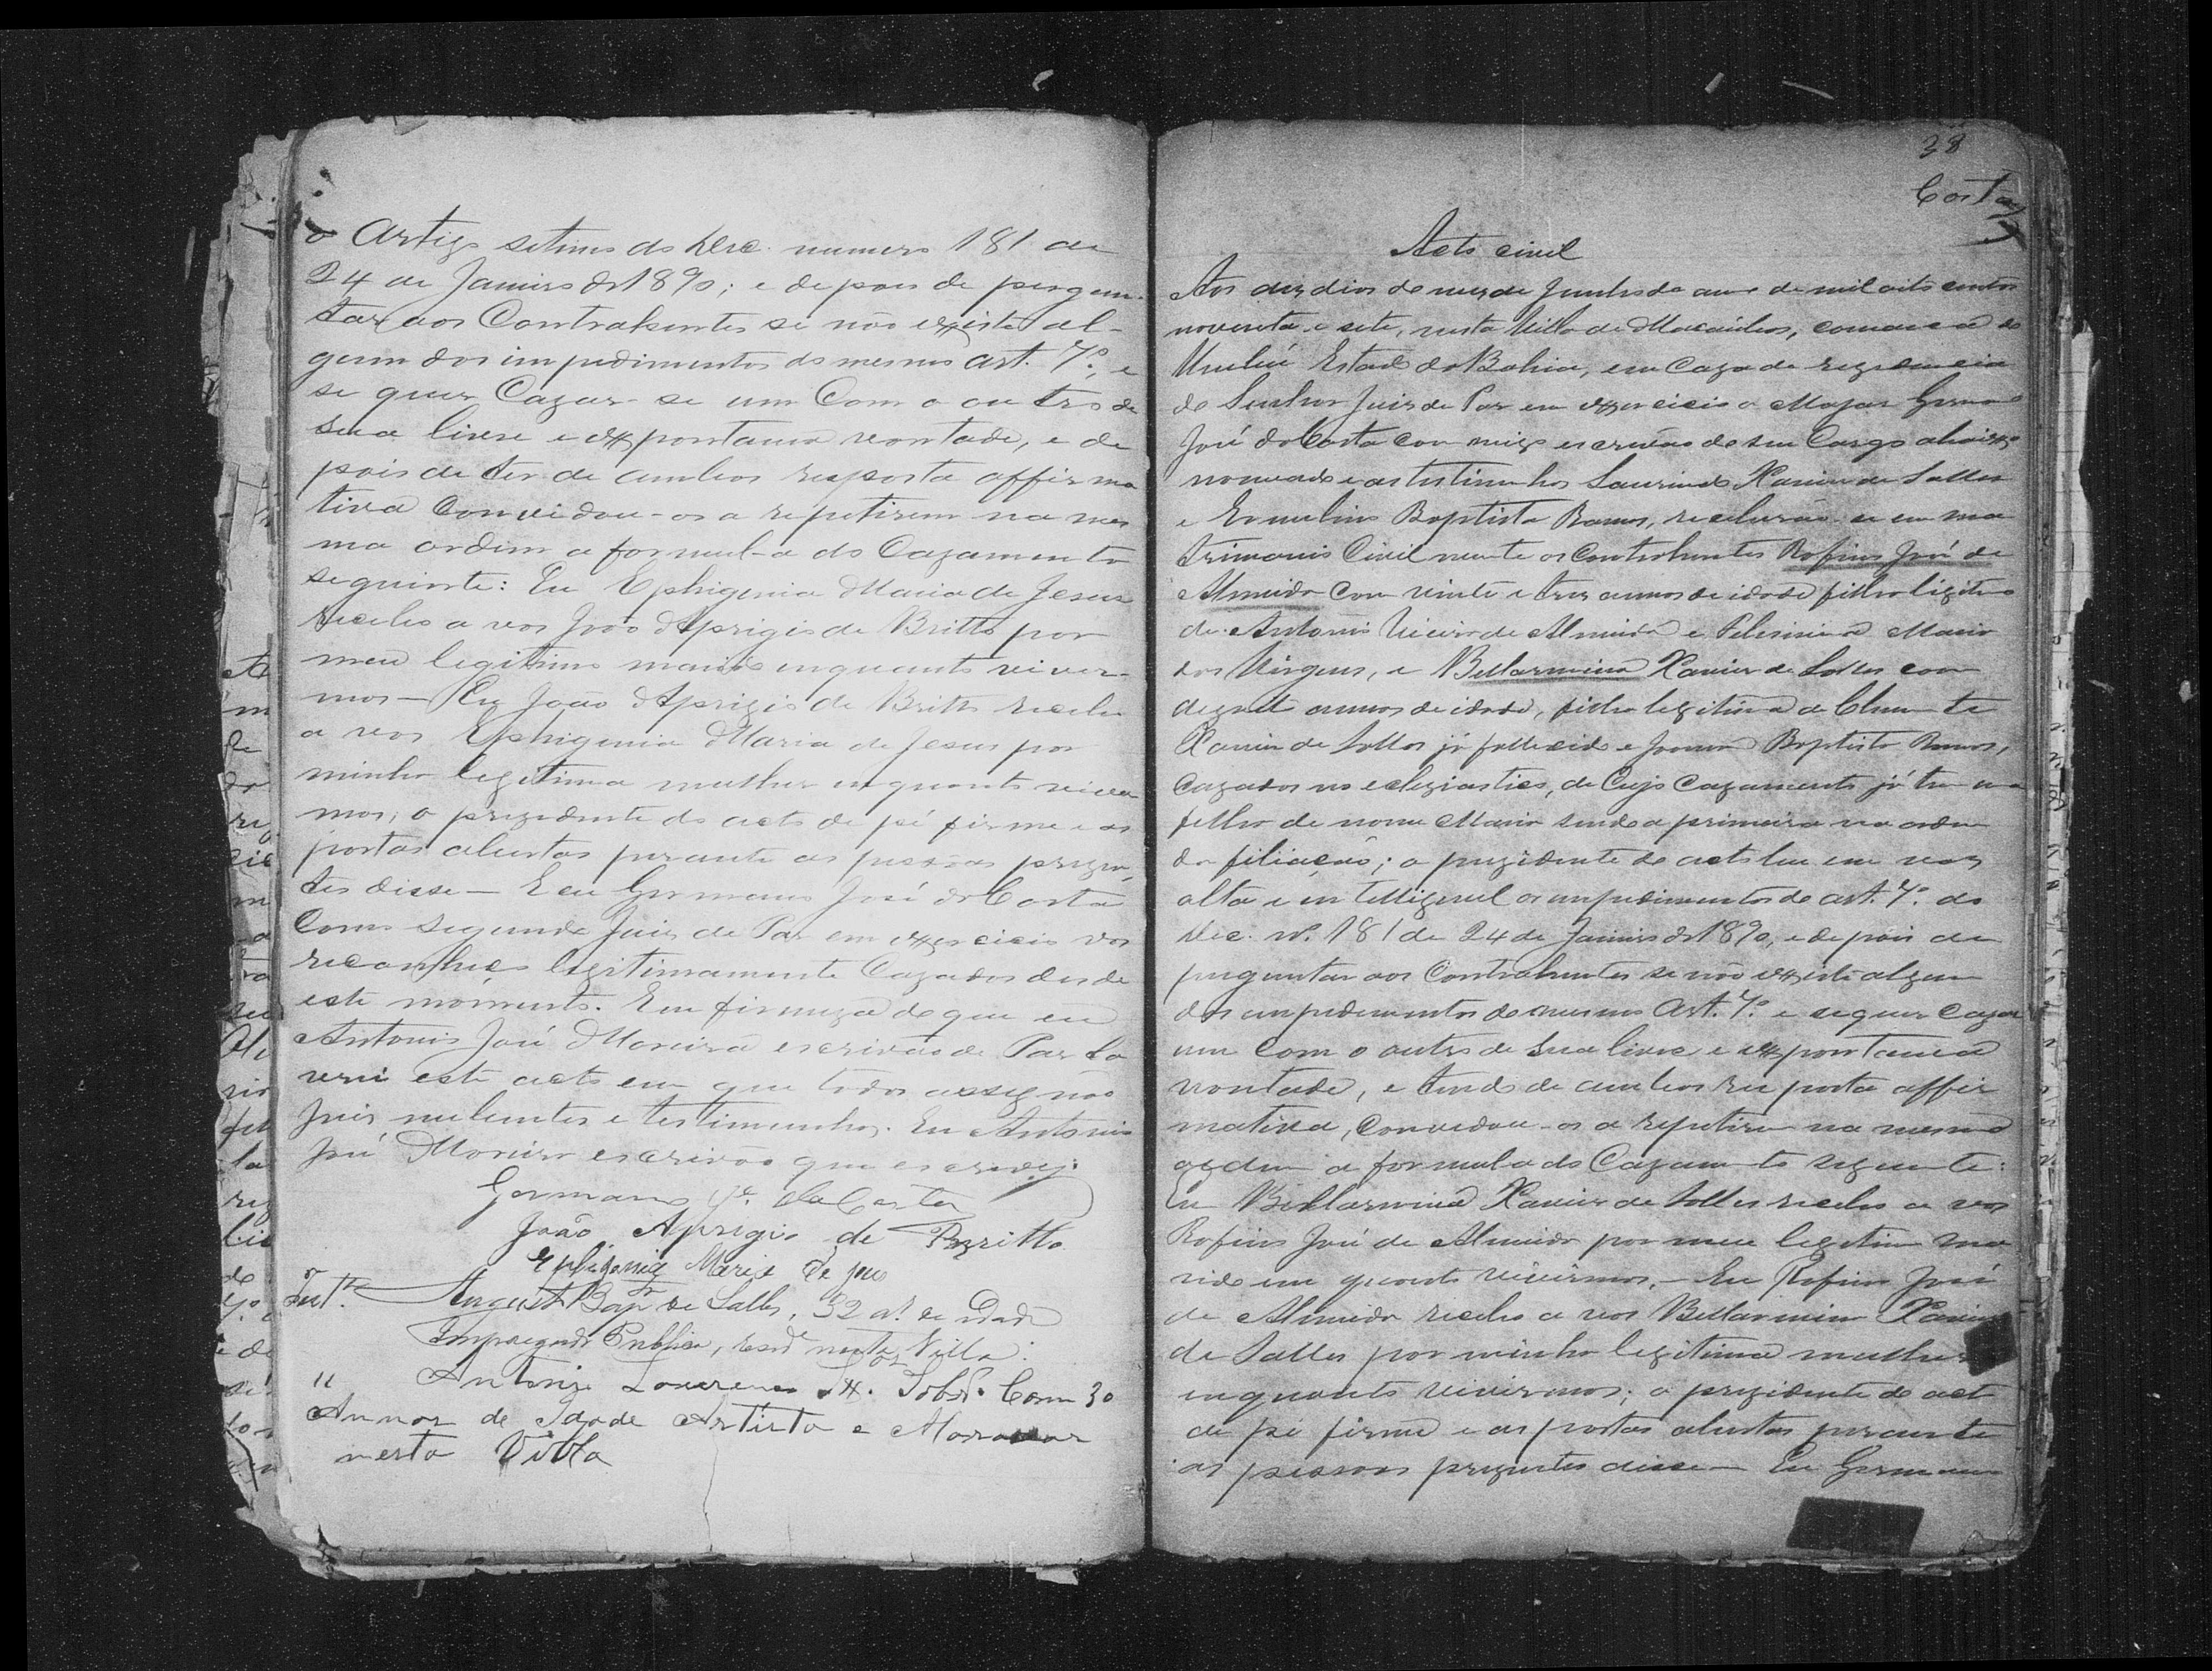 o Artigo setimo do Dec. numero 181 de
24 de Janeiro de 1890; e depois de pergun-
tar aos Contrahentes se não existe al-
gum dos impedimentos do mesmo art. 7º, e
se quer Cazar-se um Com o outro de
sua livre e expontanea vontade, e de
pois de ter de ambos resposta affirma
tiva Convidou-os a repetirem na mes
ma ordem a formula do Cazamento
seguinte: Eu Ephigenia Maria de Jesus
recebo a vos João Aprigio de Britto por
meu legitimo marido enquanto viver-
mos — Eu João Aprigio de Britto recebo
a vos Ephigenia Maria de Jesus por
minha legitima mulher enquanto viver
mos; o prezidente do acto de pé firme e as
portas abertas perante as pessoas prezen
tes disse — E eu Germano José da Costa
Como segundo Juiz de Paz em exercicio vos
reconheço legitimamente Cazados desde
este momento. Em firmeza do que eu
Antonio José Moreira escrivão de Paz la
vrei este acto em que todos assignão
Juiz nubentes e testimunhas. Eu Antonio
José Moreira escrivão que escrevy.
Germano Jé. da Costa
João Aprigio de Britto
Ephigenia Maria de Jesus
Test. Augusto Bapta de Salles, 32 as de Idade
Empregado Publico, resde nesta Villa.
" Antonio Lourenço Com 30
Annos de Idade Artista e Morador
nesta Villa
38
Costa
Acto civil
Aos dez dias do mez de Junho do anno de mil oito centos
noventa e sete, nesta Villa de Macaúbas, comarca do
Estado da Bahia, em Caza de rezidencia
do Senhor Juiz de Paz em exercicio o Major Germano
José da Costa com migo escrivão de seu Cargo abaixo
nomeado e as testimunhas Laurindo Xavier de Salles
e Baptista Ramos, receberão-se em ma
trimonio Civil mente os Contrahentes Rofino José de
Almeida com vinte e tres annos de idade filho ligitimo
de Antonio Vieira de Almeida e Maria
das Virgens, e Bellarmina Xavier de Salles com
dezesete annos de idade, filha legitima de Clemente
Xavier de Salles já fallecido e Joanna Baptista Ramos,
Cazados no ecleziastico, de Cujo Cazamento já tem um
filho de nome Maria sendo a primeira na ordem
da filiação; o prezidente do acto leu em voz
alta e intelligivel os impedimentos do art. 7º do
Dec. nº. 181 de 24 de Janeiro de 1890, e depois de
perguntar aos Contrahentes se não existe algum
dos impedimentos do mesmo Art. 7º e se quer Cazar
um Com o outro de sua livre e expontanea
vontade, e tendo de ambos resposta affir
mativa, Convidou-os a repetirem na mesma
ordem a formula do Cazamento seguinte:
Eu Bellarmina Xavier de Salles recebo a vos
Rofino José de Almeida por meu legitimo ma
rido em quanto vivermos. — Eu Rofino José
de Almeida recebo a vos Bellarmina Xavier
de Salles por minha legitima mulher
enquanto vivermos; o prezidente do acto
de pé firme e as portas abertas perante
as pessoas prezentes disse — Eu Germano